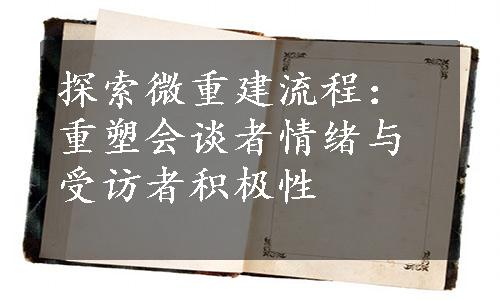 探索微重建流程：
重塑会谈者情绪与
受访者积极性